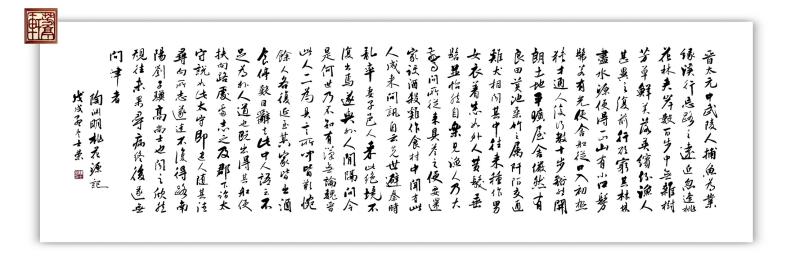 晉太元中武陵人捕魚為業
緣溪行忘路之遠近忽逢桃
花林夾岸數百步中無雜樹
芳草鮮美落英繽紛漁人
甚異之復前行欲窮其林林
盡水源便得一山山有小口髣
髴若有光便舍船從口入初極
狹才通人復行數十步豁然開
朗土地平曠屋舍儼然有
良田美池桑竹之屬阡陌交通
雞犬相聞其中往來種作男
女衣着悉如外人黃髮垂
髫並怡然自樂見漁人乃大
驚問所從來具答之便要還
家設酒殺雞作食村中聞有此
人咸來問訊自云先世避秦時
亂率妻子邑人來此絕境不
復出焉遂與外人間隔問今
是何世乃不知有漢無論魏晉
此人一一為具言所聞皆嘆惋
餘人各復延至其家皆出酒
食停數日辭去此中人語云不
足為外人道也既出得其船便
扶向路處處志之及郡下詣太
守說如此太守即遣人隨其往
尋向所志遂迷不復得路南
陽劉子驥高尚士也聞之欣然
規往未果尋病終後遂無
問津者
陶淵明桃花源記
戊戌士榮